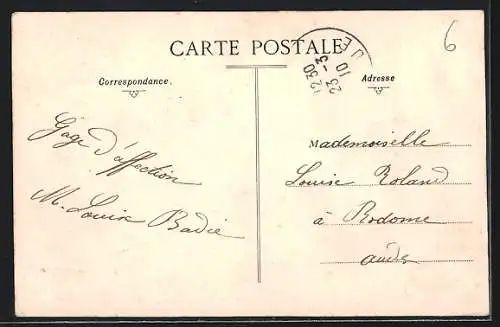 CARTE POSTALE
6
12 30
23 - 3
10
Correspondance.
Adresse
Gage d'affection
M. Louise Badie
Mademoiselle
Louise Roland
à Rodome
Aude